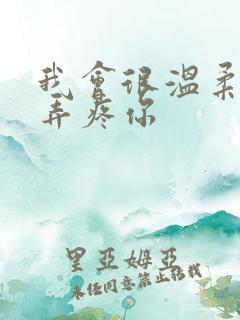 我會很溫柔
弄疼你
里亞姆亞
未经同意禁止转载